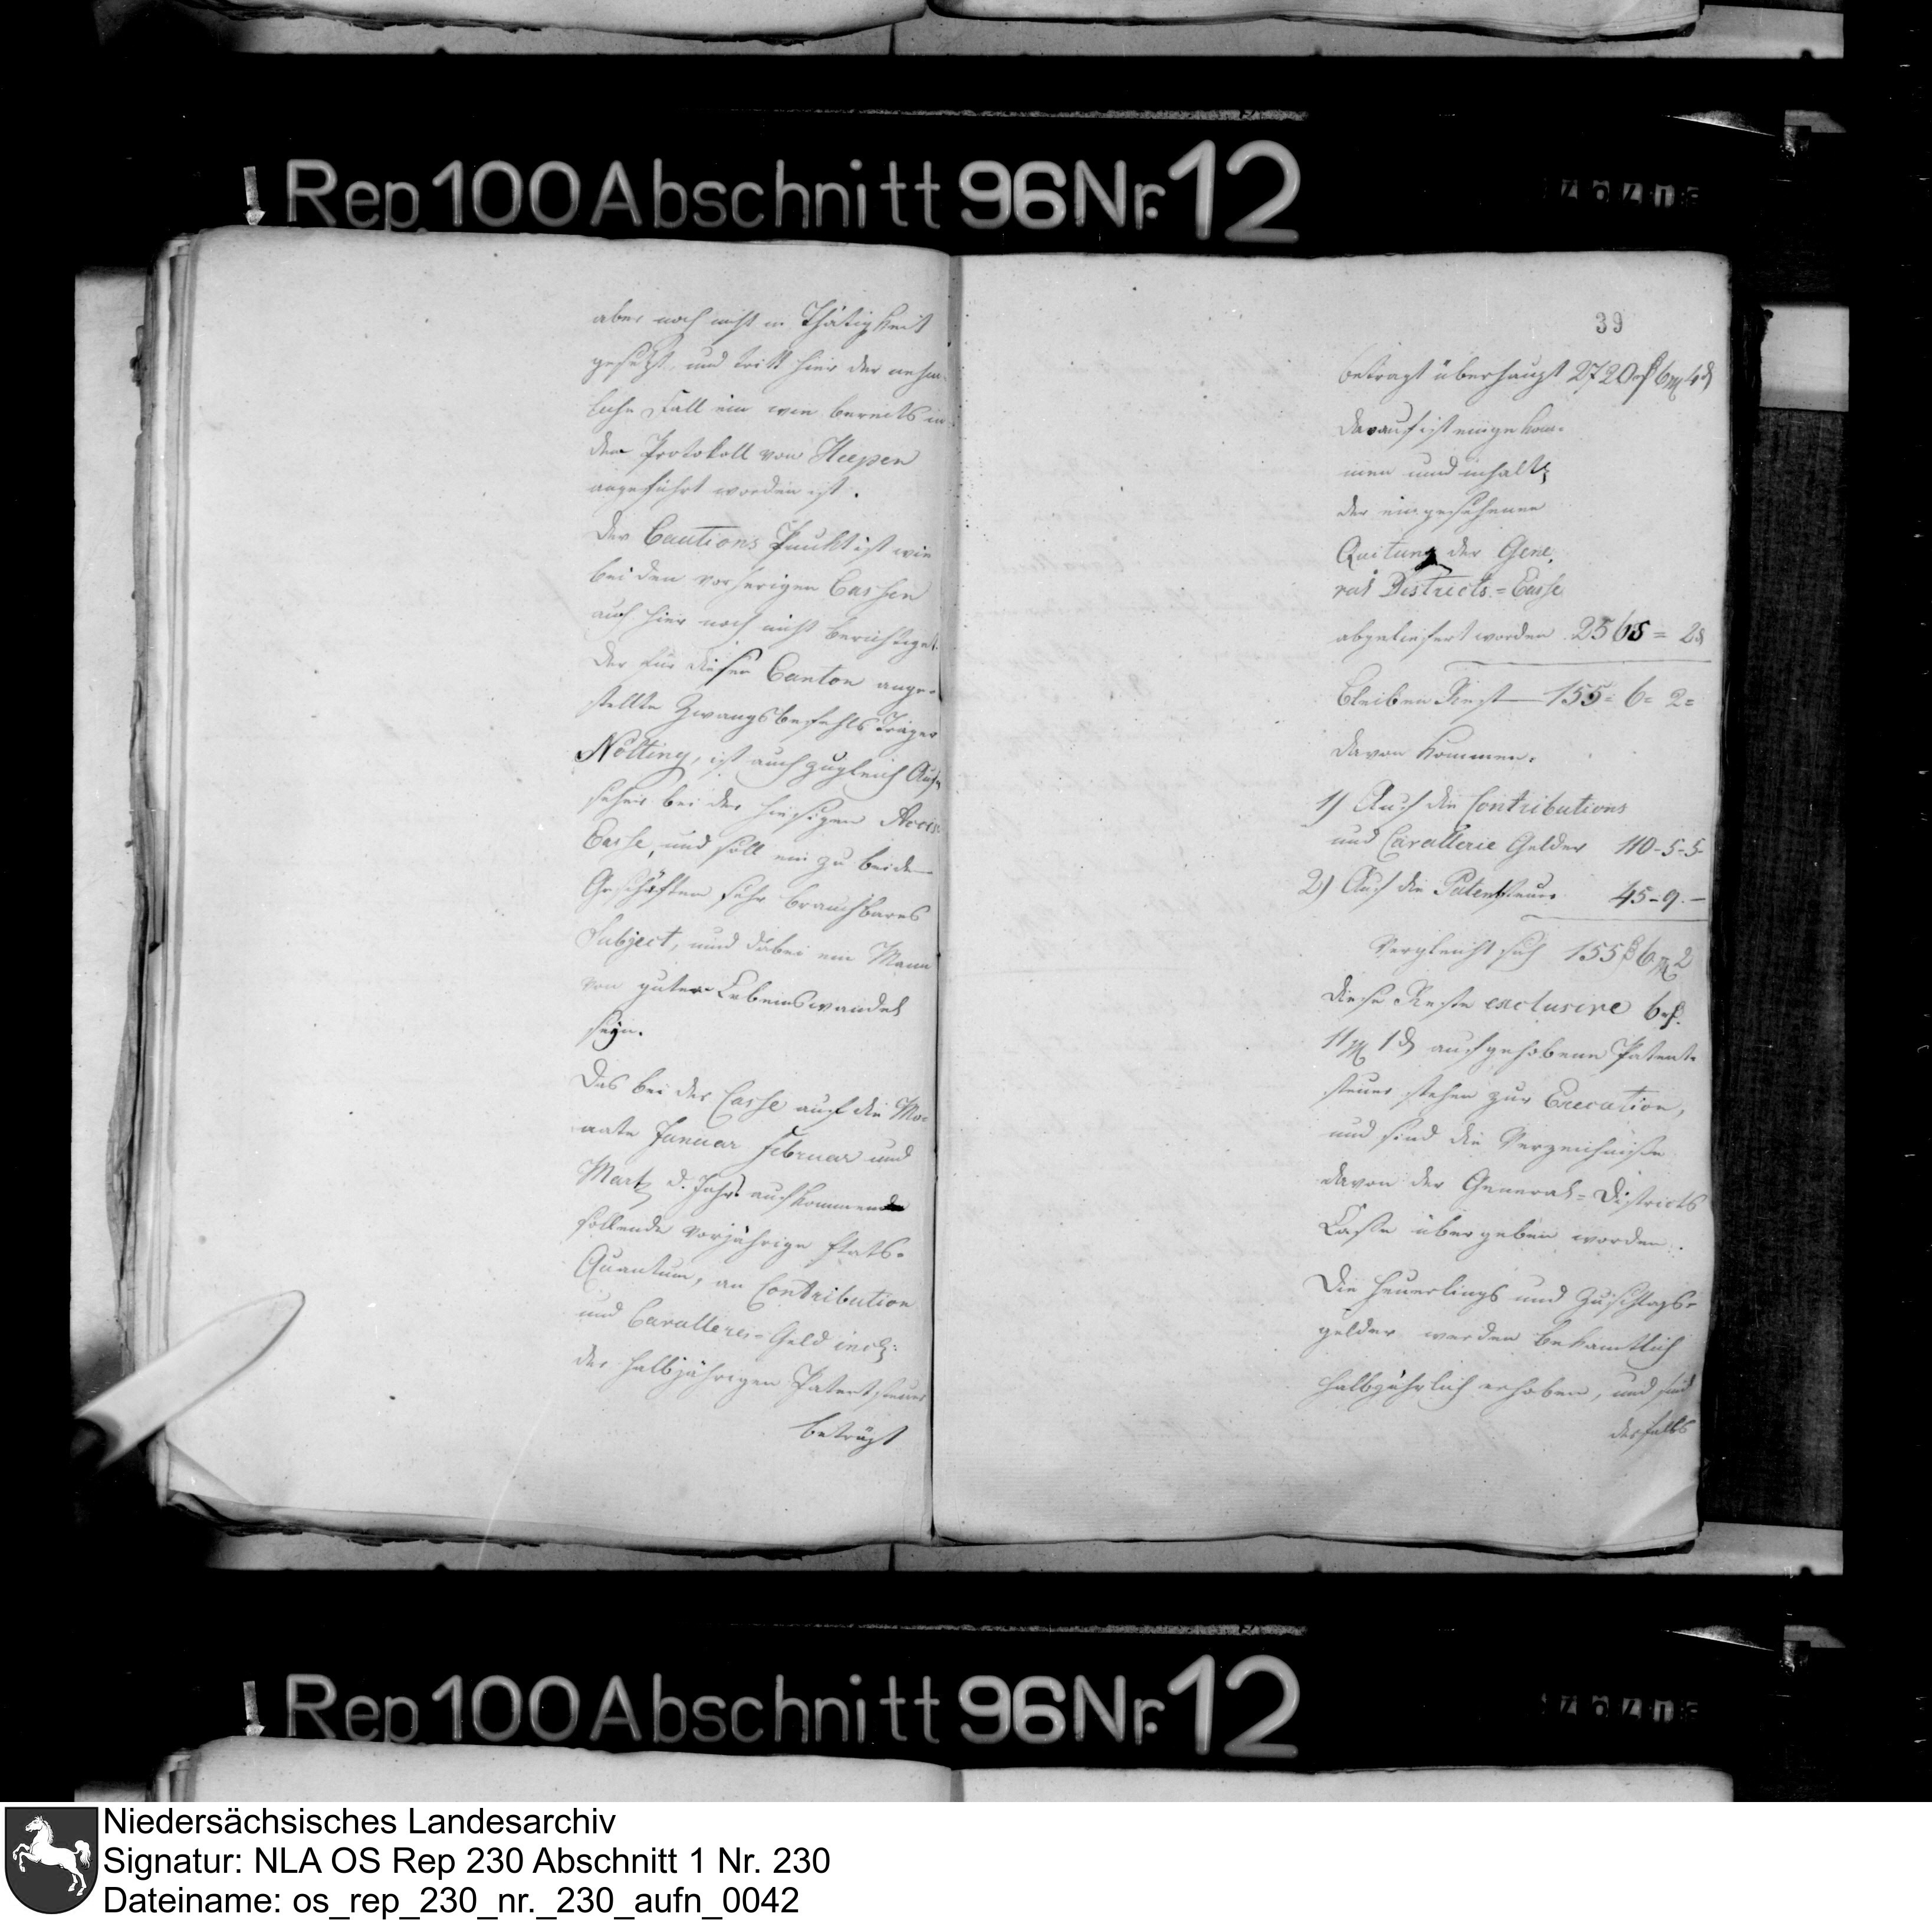 Rep 100 Abschnitt 96 Nr. 12
aber noch nicht in Thätigkeit
gesetzt, und tritt hier der nehm-
liche Fall ein wie bereits in
dem Protokoll von Heepen
angeführt worden ist.
Der Cautions Punkt ist wie
bei den vorherigen Cassen
auch hier noch nicht berichtiget.
Der für diesen Canton ange-
stellte Zwangsbefehls Träger
Nölting, ist auch zugleich Auf-
seher bei der hiesigen Accis-
Casse, und soll ein zu beiden
Geschäften sehr brauchbares
Subject, und dabei ein Mann
von guten Lebenswandel
seyn.
Das bei der Casse auf die Mo-
nate Januar Februar und
Martz d. Jahrs aufkommen
sollende vorjährige Etats-
Quantum, an Contribution
und Cavallerie-Geld incl:
der halbjährigen Patentsteuer
beträgt
39
beträgt überhaupt 2720 rß 6 gg 4 d
Darauf ist eingekom-
men und inhalts
der eingesehenen
Quitung der Gene-
ral Districts-Casse
abgeliefert worden 2565 = 2 d
Bleiben Rest — 155 = 6 = 2 =
Davon kommen.
1) Auf die Contributions
und Cavallerie Gelder 110-5-5-
2) Auf die Patentsteuer 45-9.-
Vergleicht sich 155 rß 6 gg 2
Diese Reste exclusive 6 rß.
11 gg 1 d aufgehobene Patent-
steuer stehen zur Execution,
und sind die Verzeichniße
davon der General-Districts
Casse übergeben worden.
Die Heuerlings und Zuschlags-
gelder werden bekantlich
halbjährlich erhoben, und sind
desfalls
Rep 100 Abschnitt 96 Nr. 12
Niedersächsisches Landesarchiv
Signatur: NLA OS Rep 230 Abschnitt 1 Nr. 230
Dateiname: os_rep_230_nr._230_aufn_0042